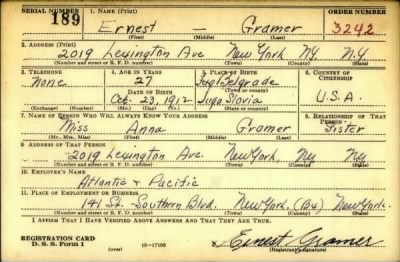 SERIAL NUMBER 189 1. NAME (Print) ORDER NUMBER
Ernest — Gramer 3242
(First) (Middle) (Last)
2. ADDRESS (Print)
2019 Lexington Ave New York NY. N.Y
(Number and street or R. F. D. number) (Town) (County) (State)
3. TELEPHONE 4. AGE IN YEARS 5. PLACE OF BIRTH 6. COUNTRY OF CITIZENSHIP
None 27 Belgrade
DATE OF BIRTH (Town or county)
Oct. 23, 1912 Jugo Slavia U.S.A.
(Exchange) (Number) (Mo.) (Day) (Yr.) (State or country)
7. NAME OF PERSON WHO WILL ALWAYS KNOW YOUR ADDRESS 8. RELATIONSHIP OF THAT PERSON
Miss Anna Gramer Sister
(Mr., Mrs., Miss) (First) (Middle) (Last)
9. ADDRESS OF THAT PERSON
2019 Lexington Ave. New York, Ny Ny
(Number and street or R. F. D. number) (Town) (County) (State)
10. EMPLOYER'S NAME
Atlantic & Pacific
11. PLACE OF EMPLOYMENT OR BUSINESS
141 St. - Southern Blvd. New York. (Bx) New York.
(Number and street or R. F. D. number) (Town) (County) (State)
I AFFIRM THAT I HAVE VERIFIED ABOVE ANSWERS AND THAT THEY ARE TRUE.
REGISTRATION CARD
D. S. S. Form 1 (over) 16-17105 x Ernest Gramer
(Registrant's signature)